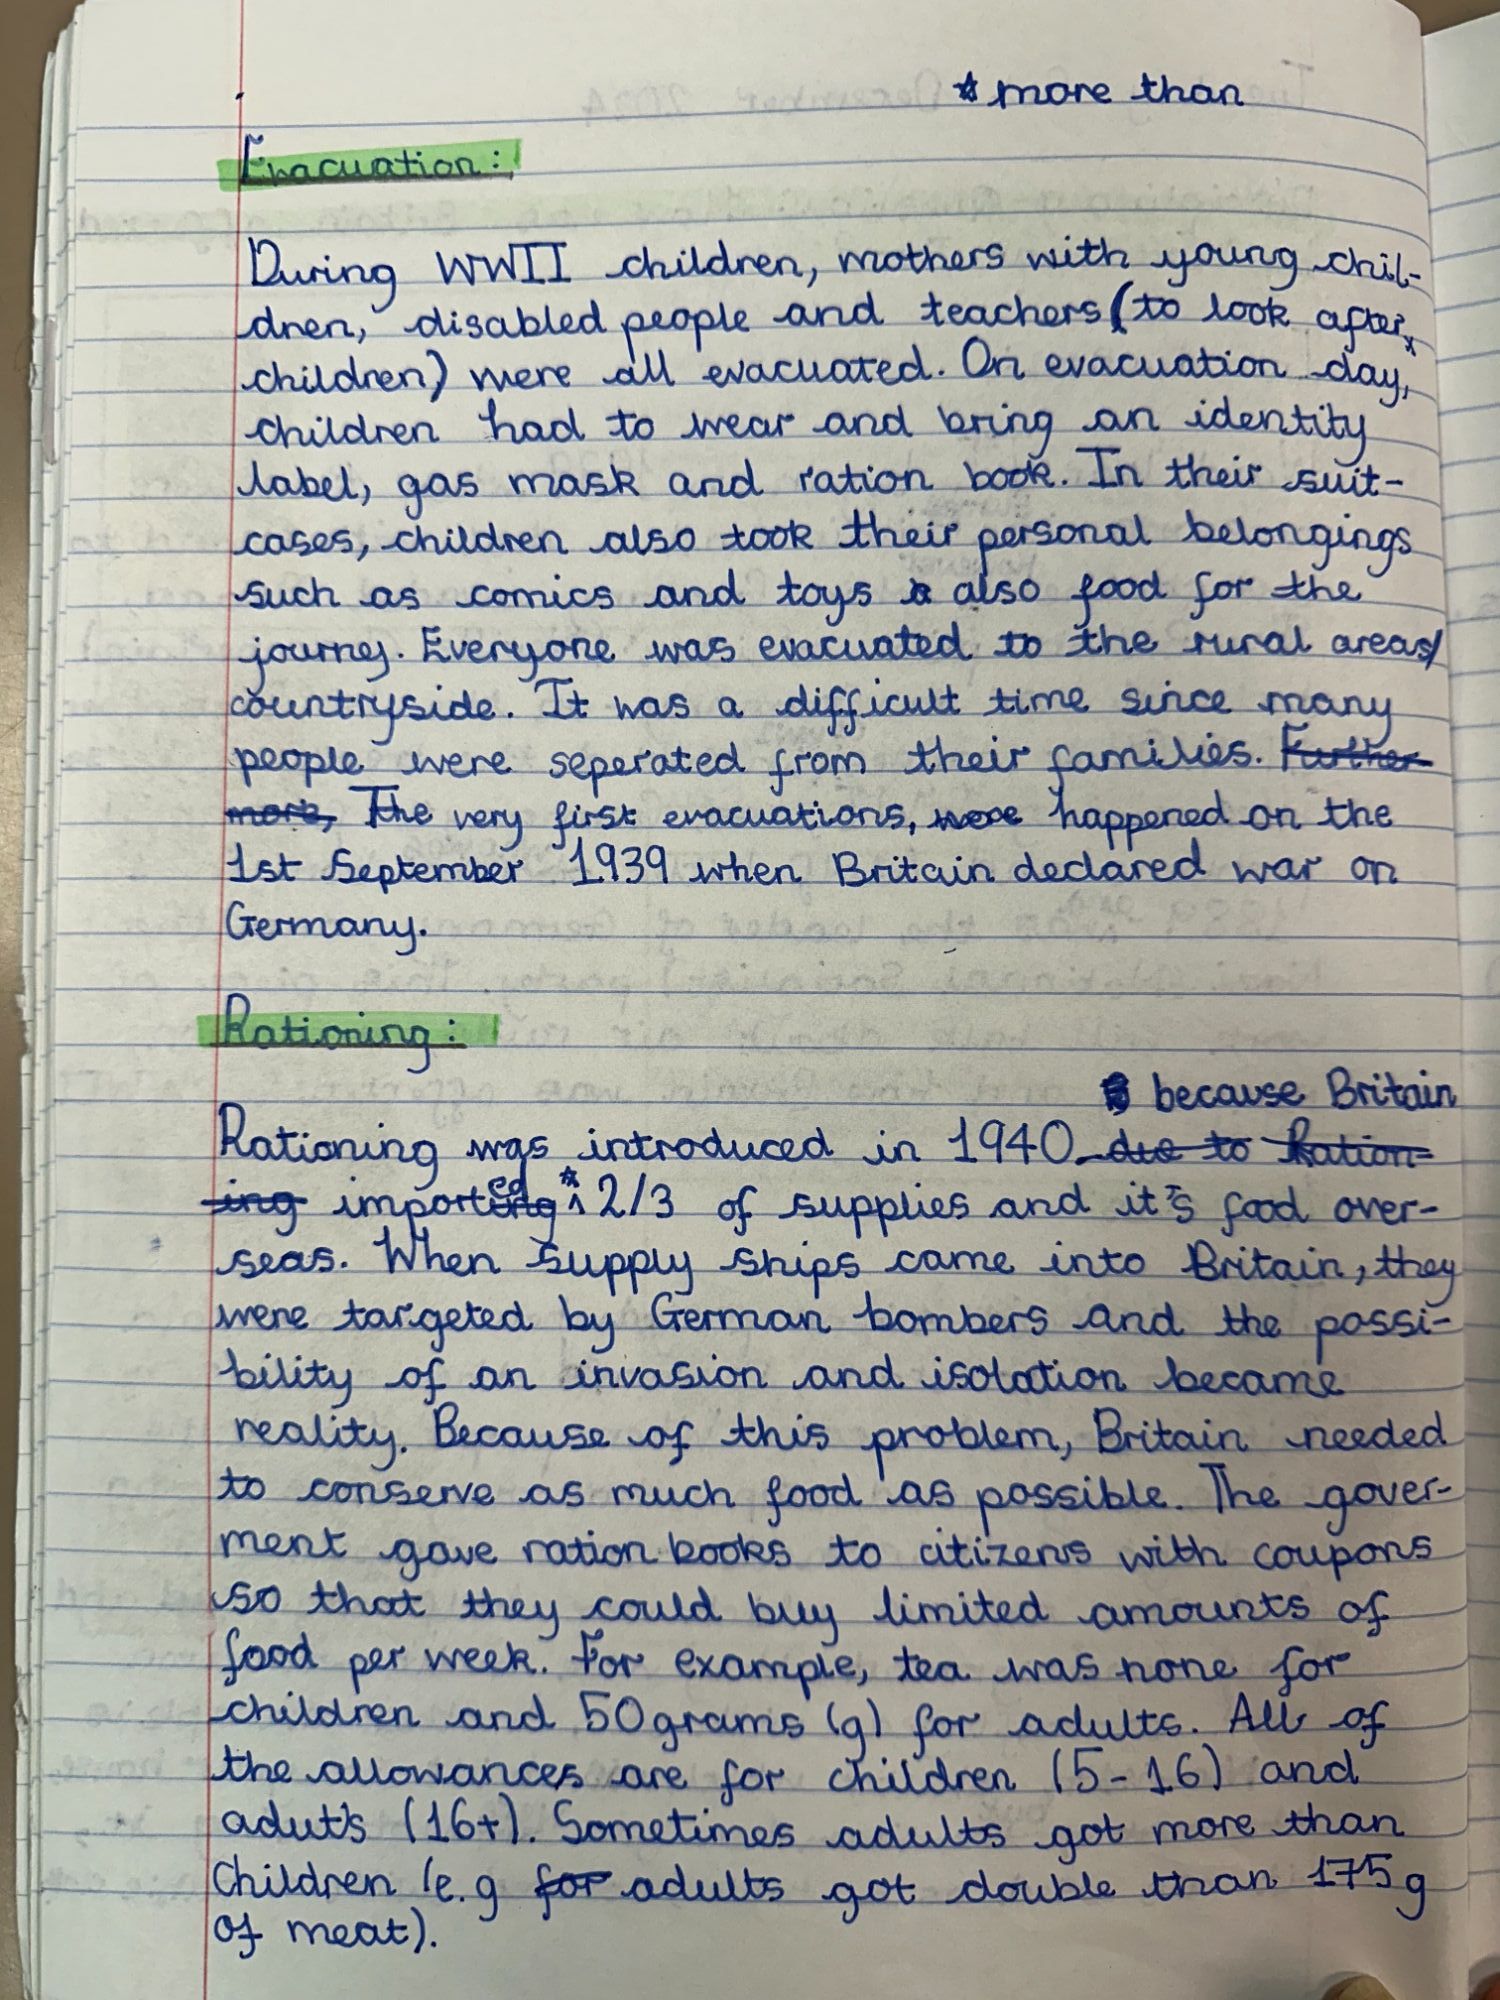 * more than
Evacuation:
During WWII children, mothers with young chil-
dren, disabled people and teachers (to look after
children) were all evacuated. On evacuation day,
children had to wear and bring an identity
label, gas mask and ration book. In their suit-
cases, children also took their personal belongings
such as comics and toys also food for the
journey. Everyone was evacuated to the rural areas/
countryside. It was a difficult time since many
people were seperated from their families. Further
more, The very first evacuations, were happened on the
1st September 1939 when Britain declared war on
Germany.
Rationing:
because Britain
Rationing was introduced in 1940 due to Ration-
ing imported * 2/3 of supplies and it's food over-
seas. When supply ships came into Britain, they
were targeted by German bombers and the possi-
bility of an invasion and isolation became
reality. Because of this problem, Britain needed
to conserve as much food as possible. The gover-
ment gave ration books to citizens with coupons
so that they could buy limited amounts of
food per week. For example, tea was none for
children and 50grams (g) for adults. All of
the allowances are for children (5-16) and
aduts (16+). Sometimes adults got more than
Children (e.g for adults got double than 175g
of meat).